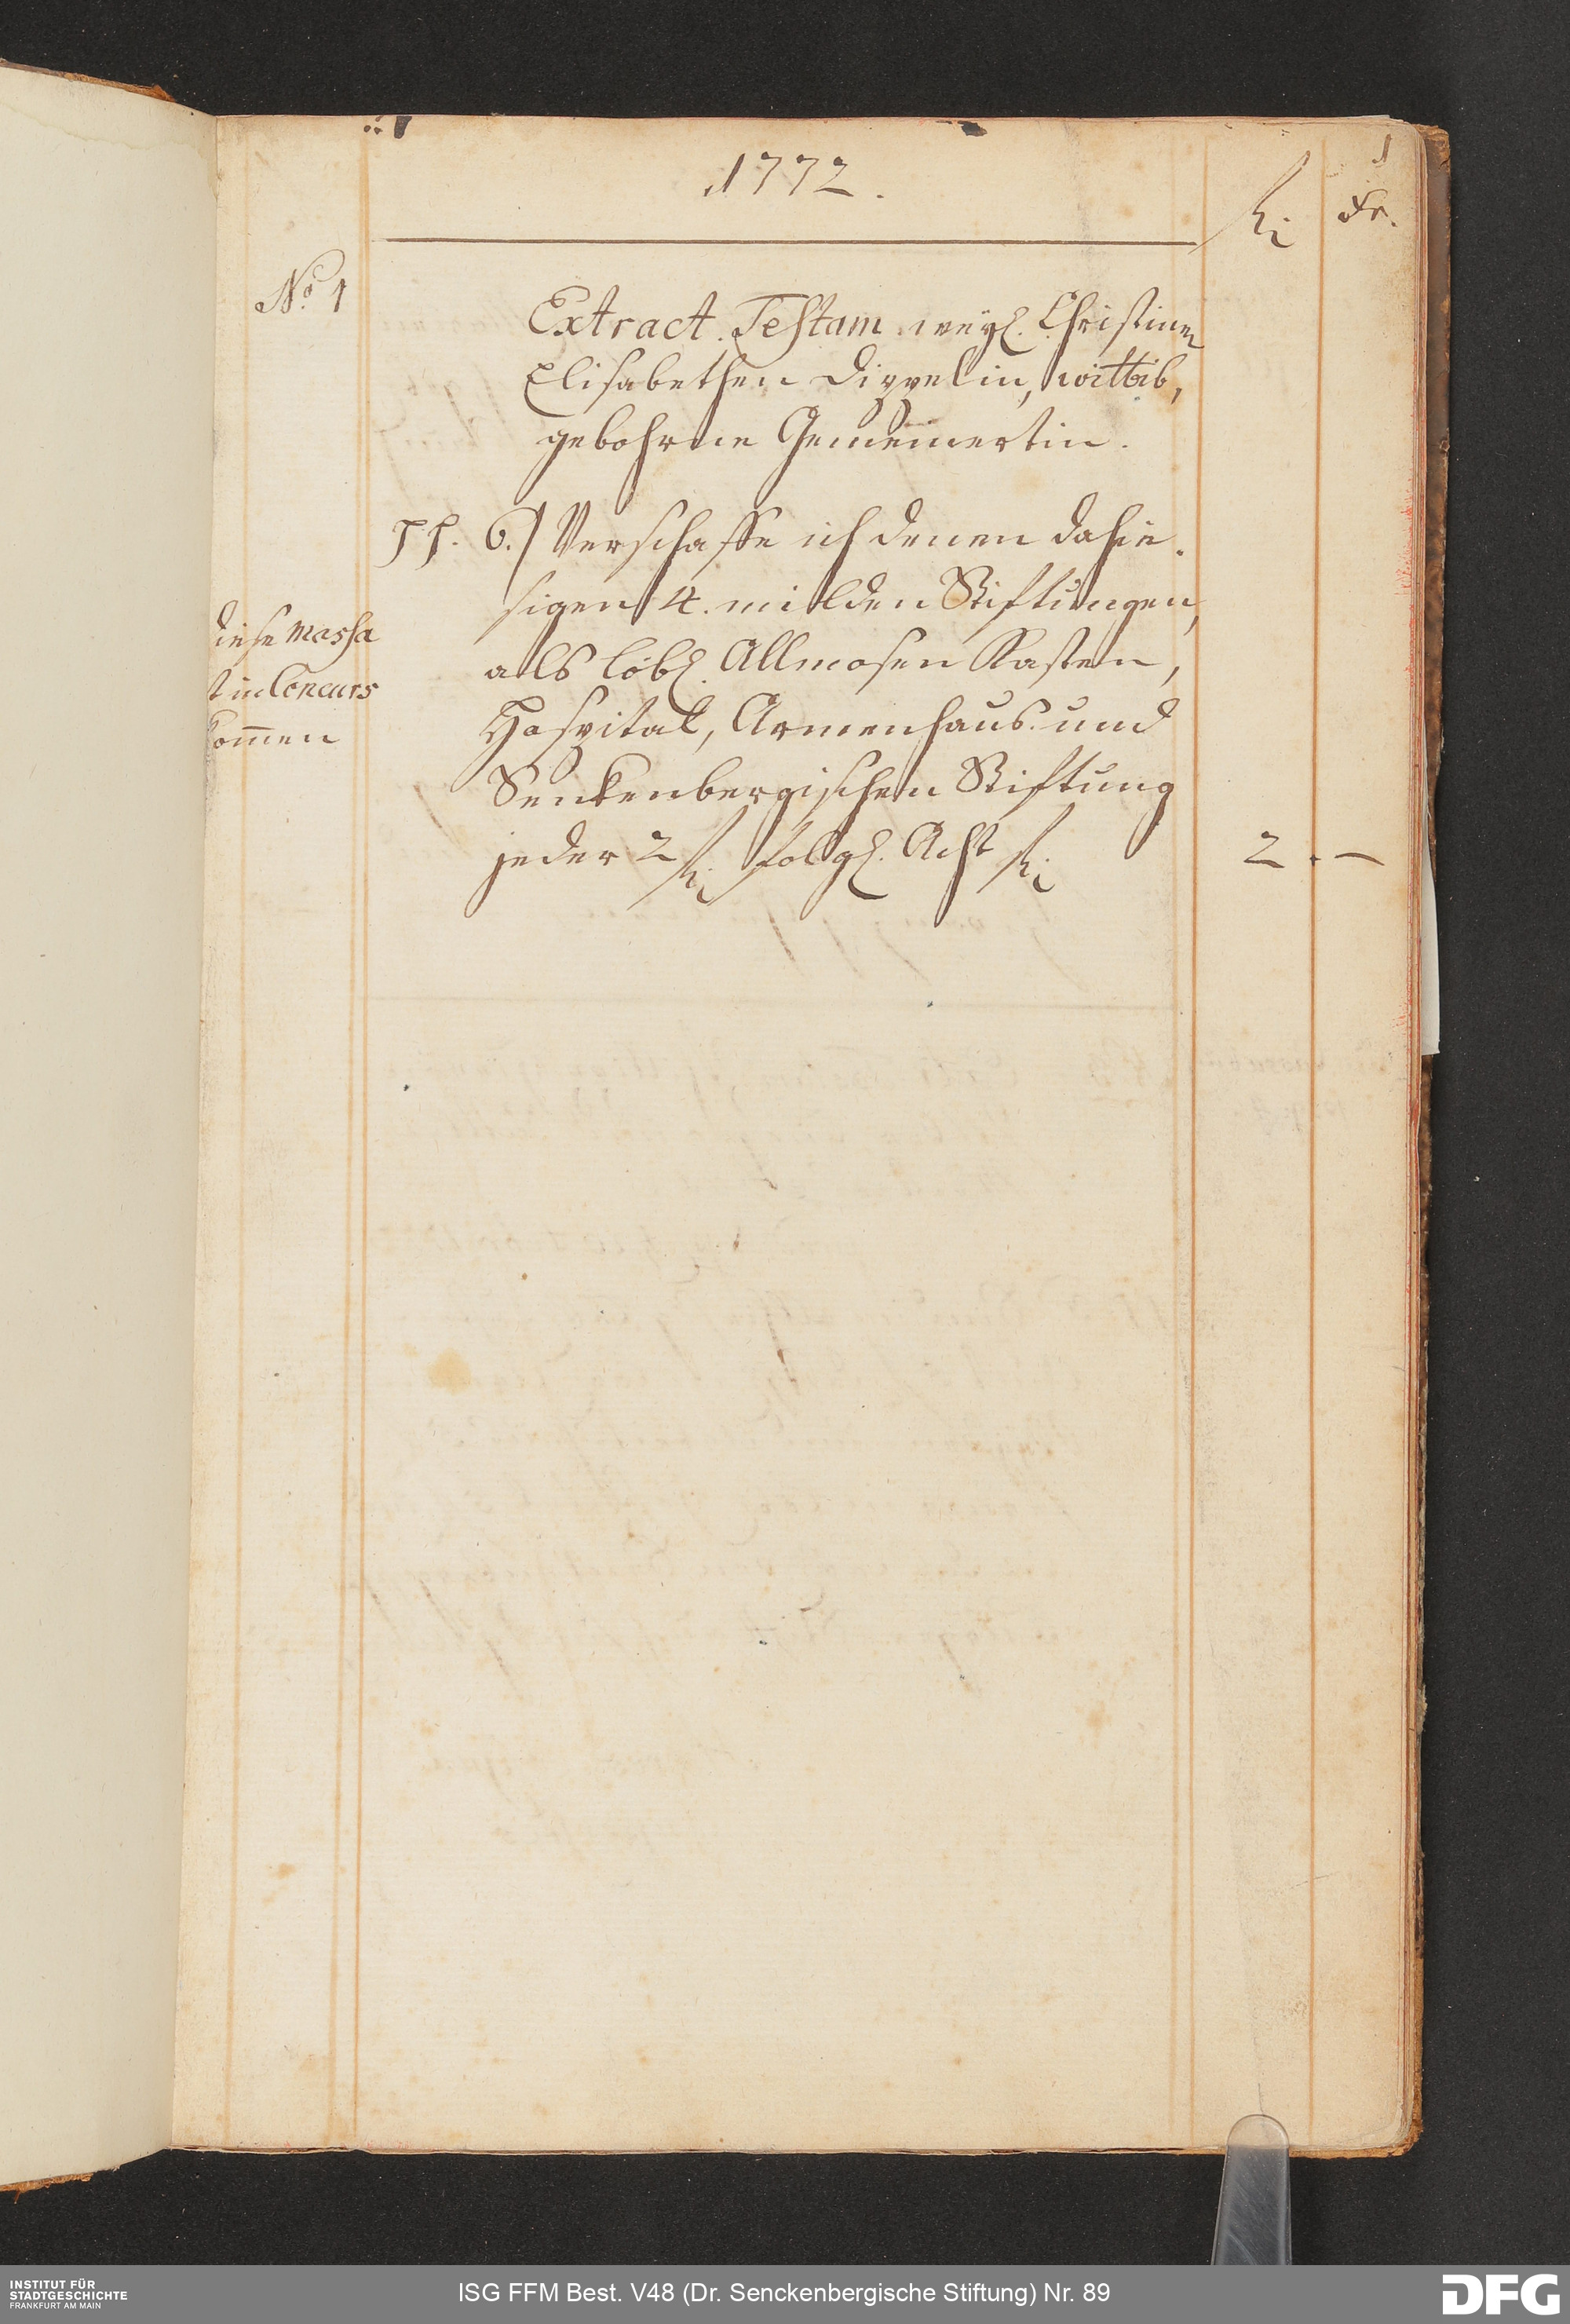 1
1772.
fl. Xr.
No. 1
Extract. Testam. weyl. Christinen
Elisabethen Dippelin, wittib,
gebohrne Gemeinertin.
pp. 6.) Verschaffe ich denen dahie-
sigen 4. milden Stiftungen,
als löbl. Allmosen Kasten,
Hospital, Armenhaus und
Senkenbergischen Stiftung
jeder 2 fl. folgl. Acht fl. 2. —
diese massa
t in Concurs
kom̅en
INSTITUT FÜR
STADTGESCHICHTE
FRANKFURT AM MAIN
ISG FFM Best. V48 (Dr. Senckenbergische Stiftung) Nr. 89
DFG